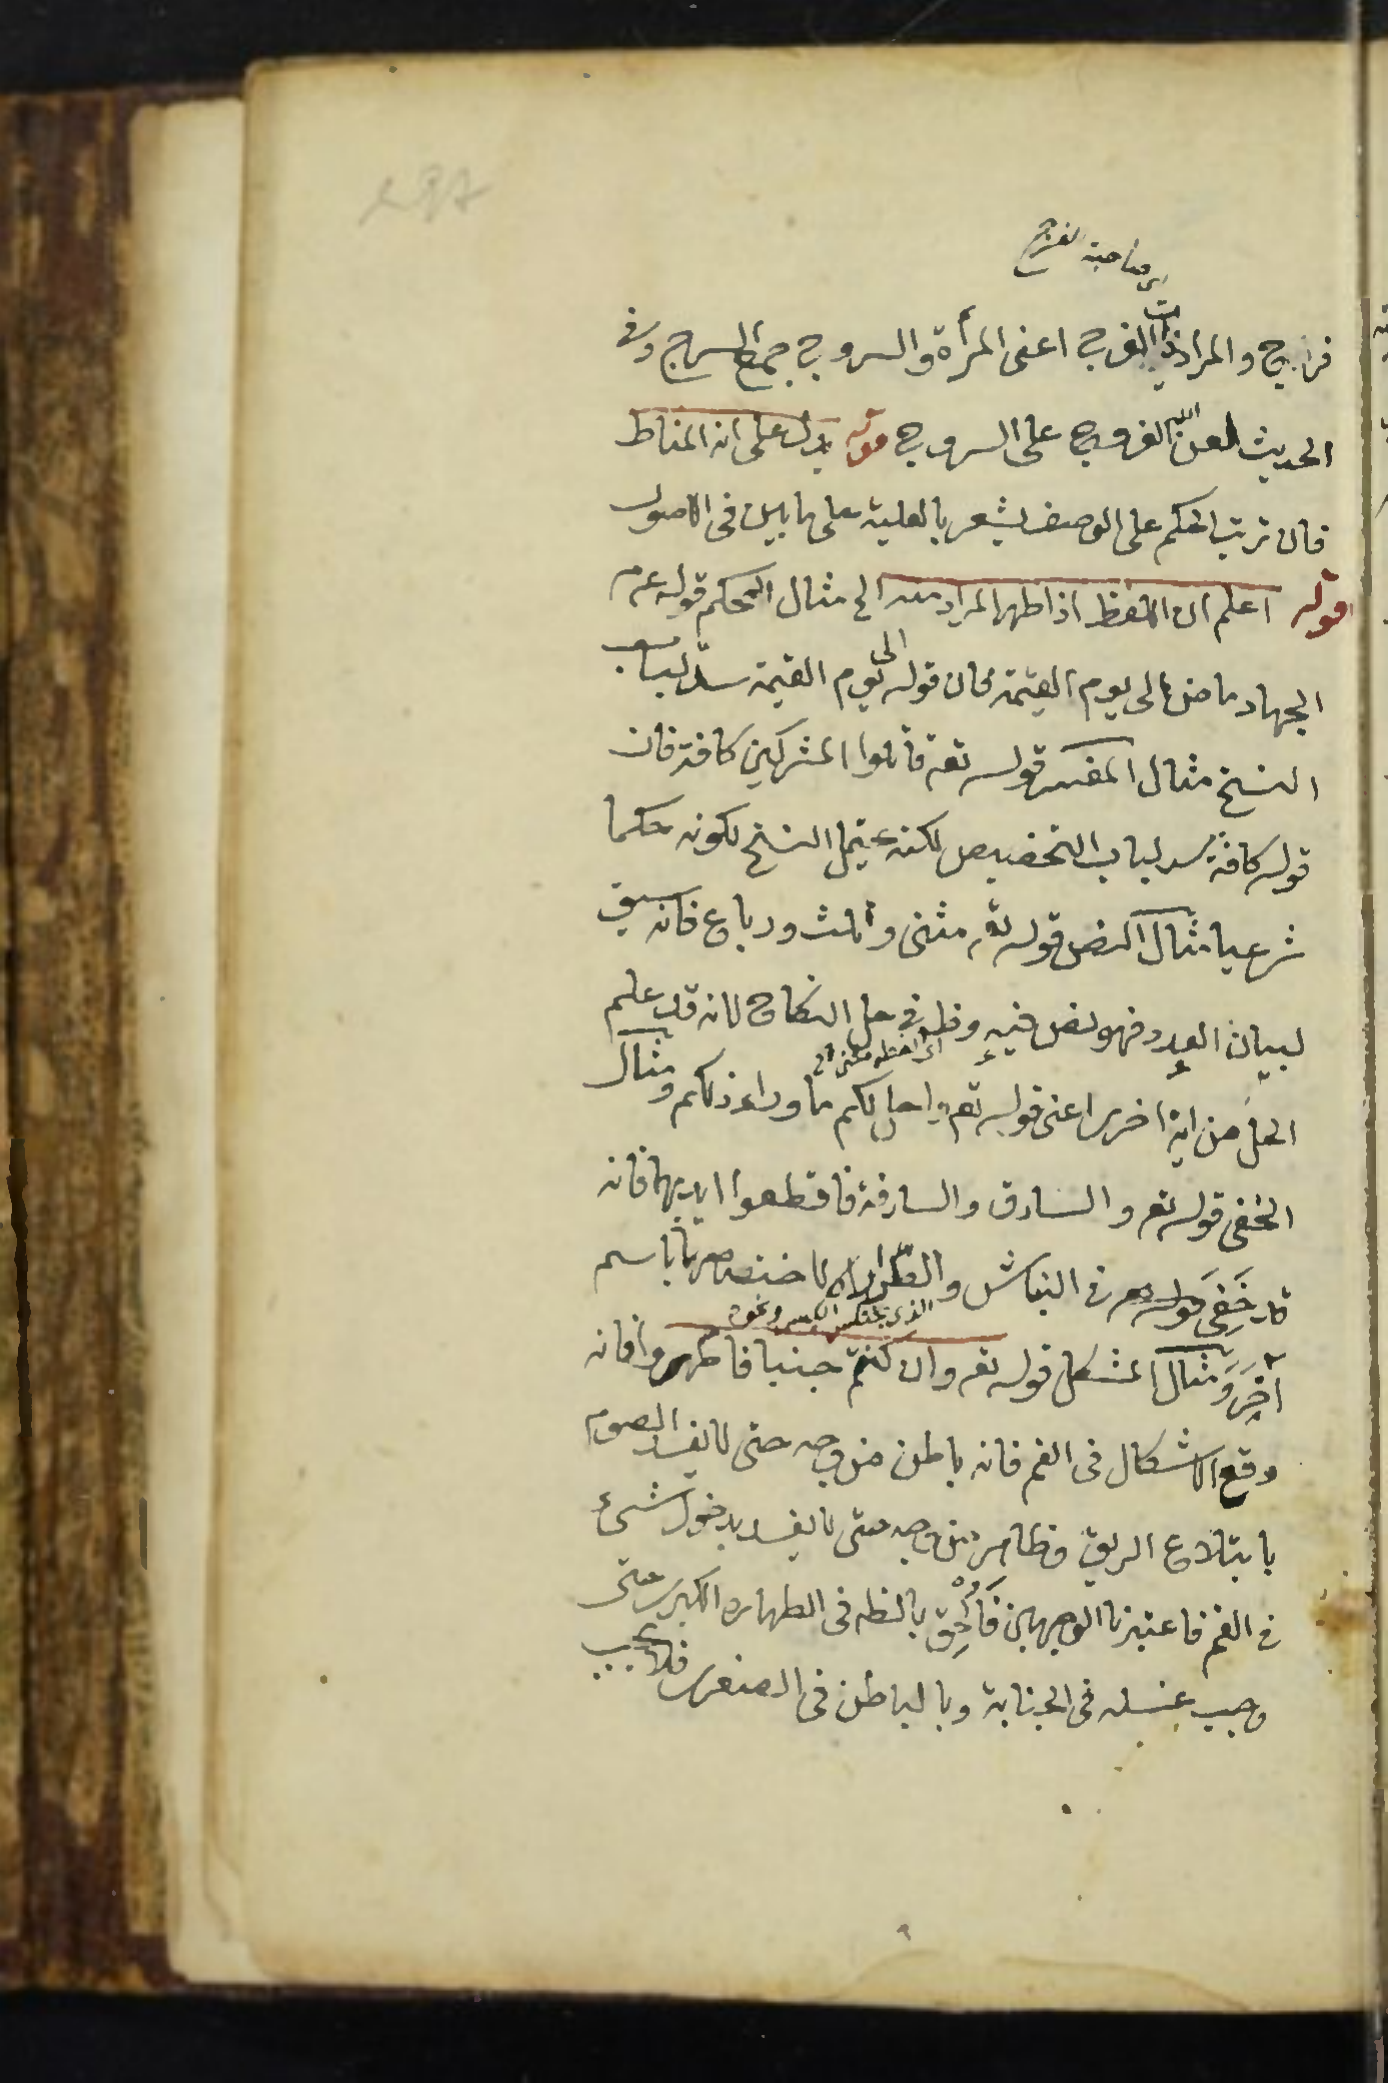 اى صاحبة الفرج
فرج والمراد ذات الفرج اعنى المرأة والسروج جمع السرج وفى
الحديث لعن الله الفروج على السروج قوله يدل على انه المناط
فان ترتب الحكم على الوصف يشعر بالعلية على ما بين فى الاصول
قوله اعلم ان اللفظ اذا ظهر المراد منه الخ مثال المحكم قوله عم
الجهاد ماض الى يوم القيمة فان قوله الى يوم القيمة سد لباب
النسخ مثال المفسر قوله تعه قاتلوا المشركين كافة فان
قوله كافة سد لباب التخصيص لكنه يحتمل النسخ لكونه حكما
شرعيا مثال النص قوله تعه مثنى وثلث ورباع فانه سيق
لبيان العدد فهو نص فيه وظه فى حل النكاح لانه قد علم
الحل من اية اخرى اعنى قوله تعه واحل لكم ما وراء ذلكم ومثال
الخفى قوله تعه والسارق والسارقة فاقطعوا ايديهما فانه
قد خفى فى النباش والطرار لاختصاصهما باسم
الذى يختلس الكيس ونحوه
آخر ومثال المشكل قوله تعه وان كنتم جنبا فاطهروا فانه
وقع الاشكال فى الفم فانه باطن من وجه حتى لا يفسد الصوم
بابتلاع الريق وظاهر من وجه حتى لا يفسد بدخول شئ
فى الفم فاعتبرنا الوجهين فالحق بالظه فى الطهارة الكبرى حتى
وجب غسله فى الجنابة وبالباطن فى الصغرى فلا يجب